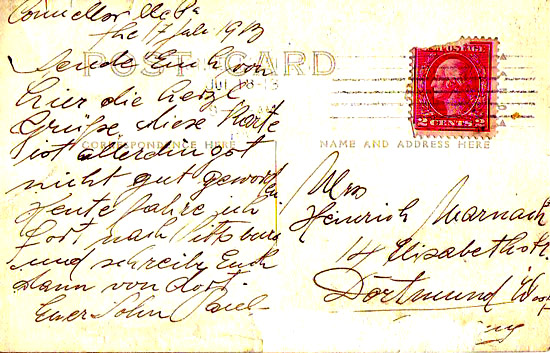 Connellsville Pa
the 17 Juli 1913
POST CARD
Sende Euch von
JUL 18
hier die herzl
Grüße diese Karte
ist allerdings
CORRESPONDENCE HERE
nicht gut geworden
Heute fahre ich
fort nach Pittsburg
und schreibe Euch
dann von dort
Euer Sohn
POSTAGE
2 CENTS 2
NAME AND ADDRESS HERE
Mrs
Heinrich Warnach
14 Elisabethstr.
Dortmund